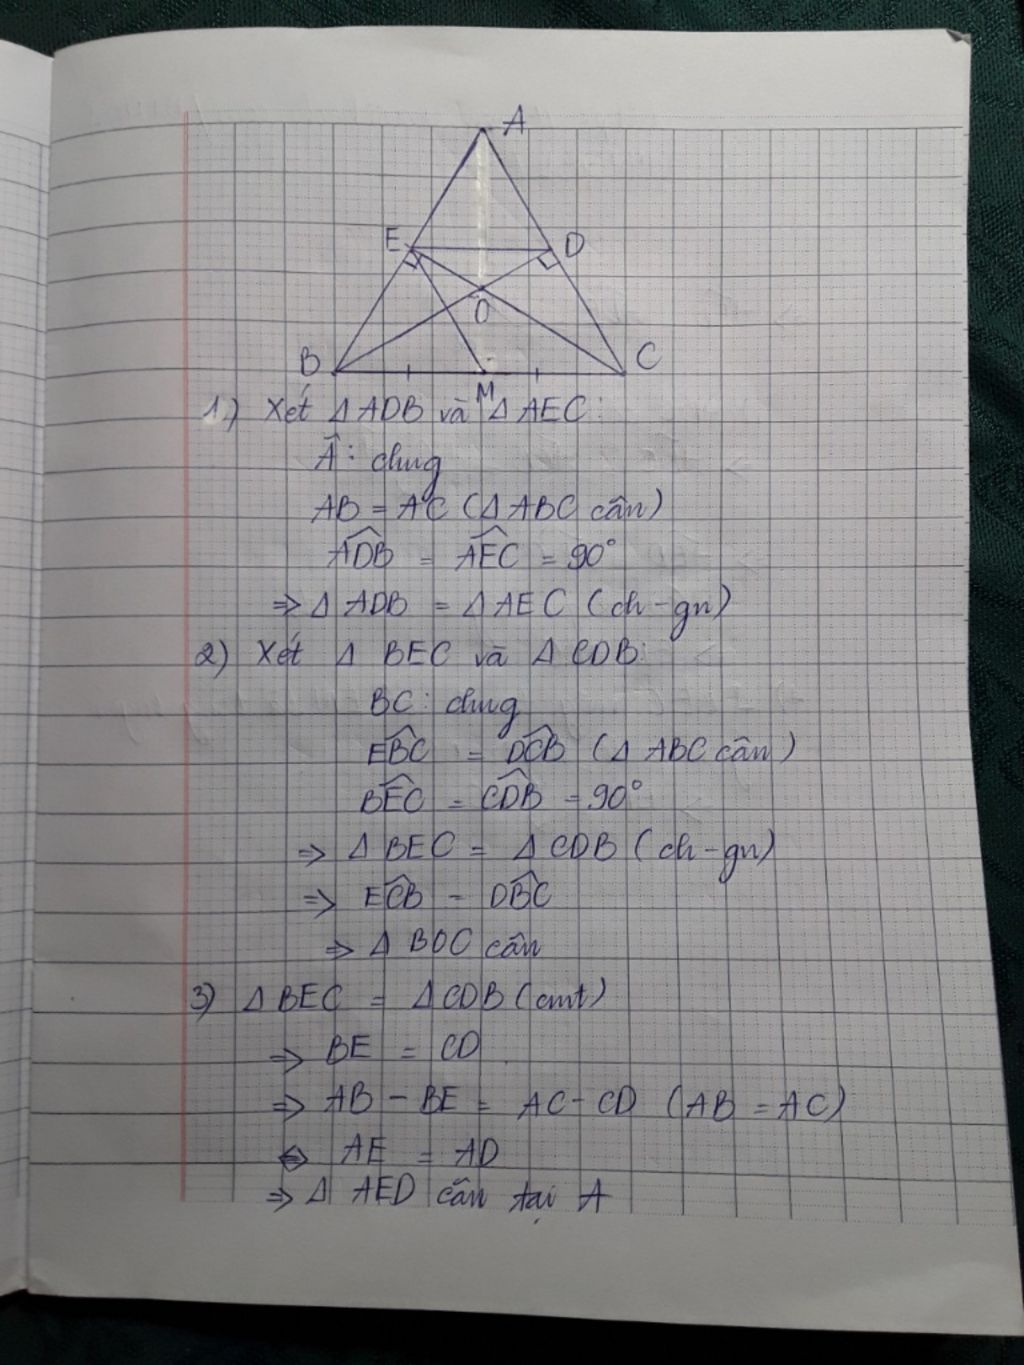 A
E
D
O
B
C
M
1) Xét Δ ADB và Δ AEC:
Â: chung
AB = AC (Δ ABC cân)
ADB̂ = AEĈ = 90°
⇒ Δ ADB = Δ AEC (ch-gn)
2) Xét Δ BEC và Δ CDB:
BC: chung
EBĈ = DCB̂ (Δ ABC cân)
BEĈ = CDB̂ = 90°
⇒ Δ BEC = Δ CDB (ch-gn)
⇒ ECB̂ = DBĈ
⇒ Δ BOC cân
3) Δ BEC = Δ CDB (cmt)
⇒ BE = CD
⇒ AB - BE = AC - CD (AB = AC)
⇔ AE = AD
⇒ Δ AED cân tại A